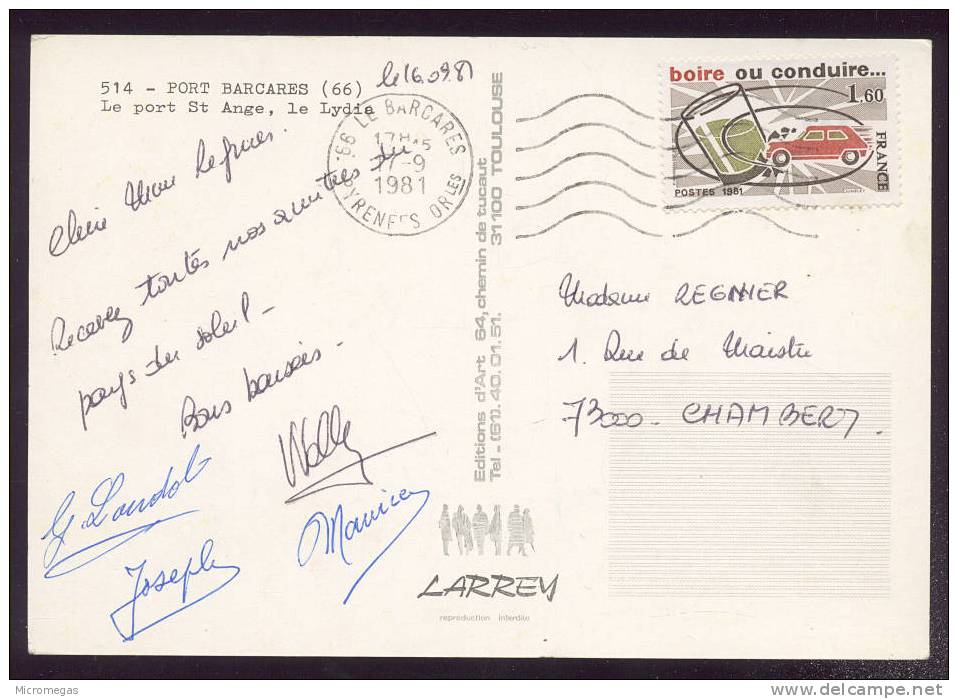 514 - PORT BARCARES (66)
Le port St Ange, le Lydia
le 16.09.81
66 LE BARCARES
17H45
17-9
1981
PYRENEES ORles
boire ou conduire...
1,60
FRANCE
POSTES 1981
Chère Mme Regnier.
Recevez toutes nos amitiés du
pays du soleil -
Bons baisers -
Wally
G. Landol
Joseph
Maurice
Editions d'Art 64, chemin de tucaut
Tel - (61). 40.01.51. 31100 TOULOUSE
LARREY
reproduction interdite
Madame REGNIER
1. Rue de Maistre
73000 - CHAMBERY.
Micromegas
www.delcampe.net